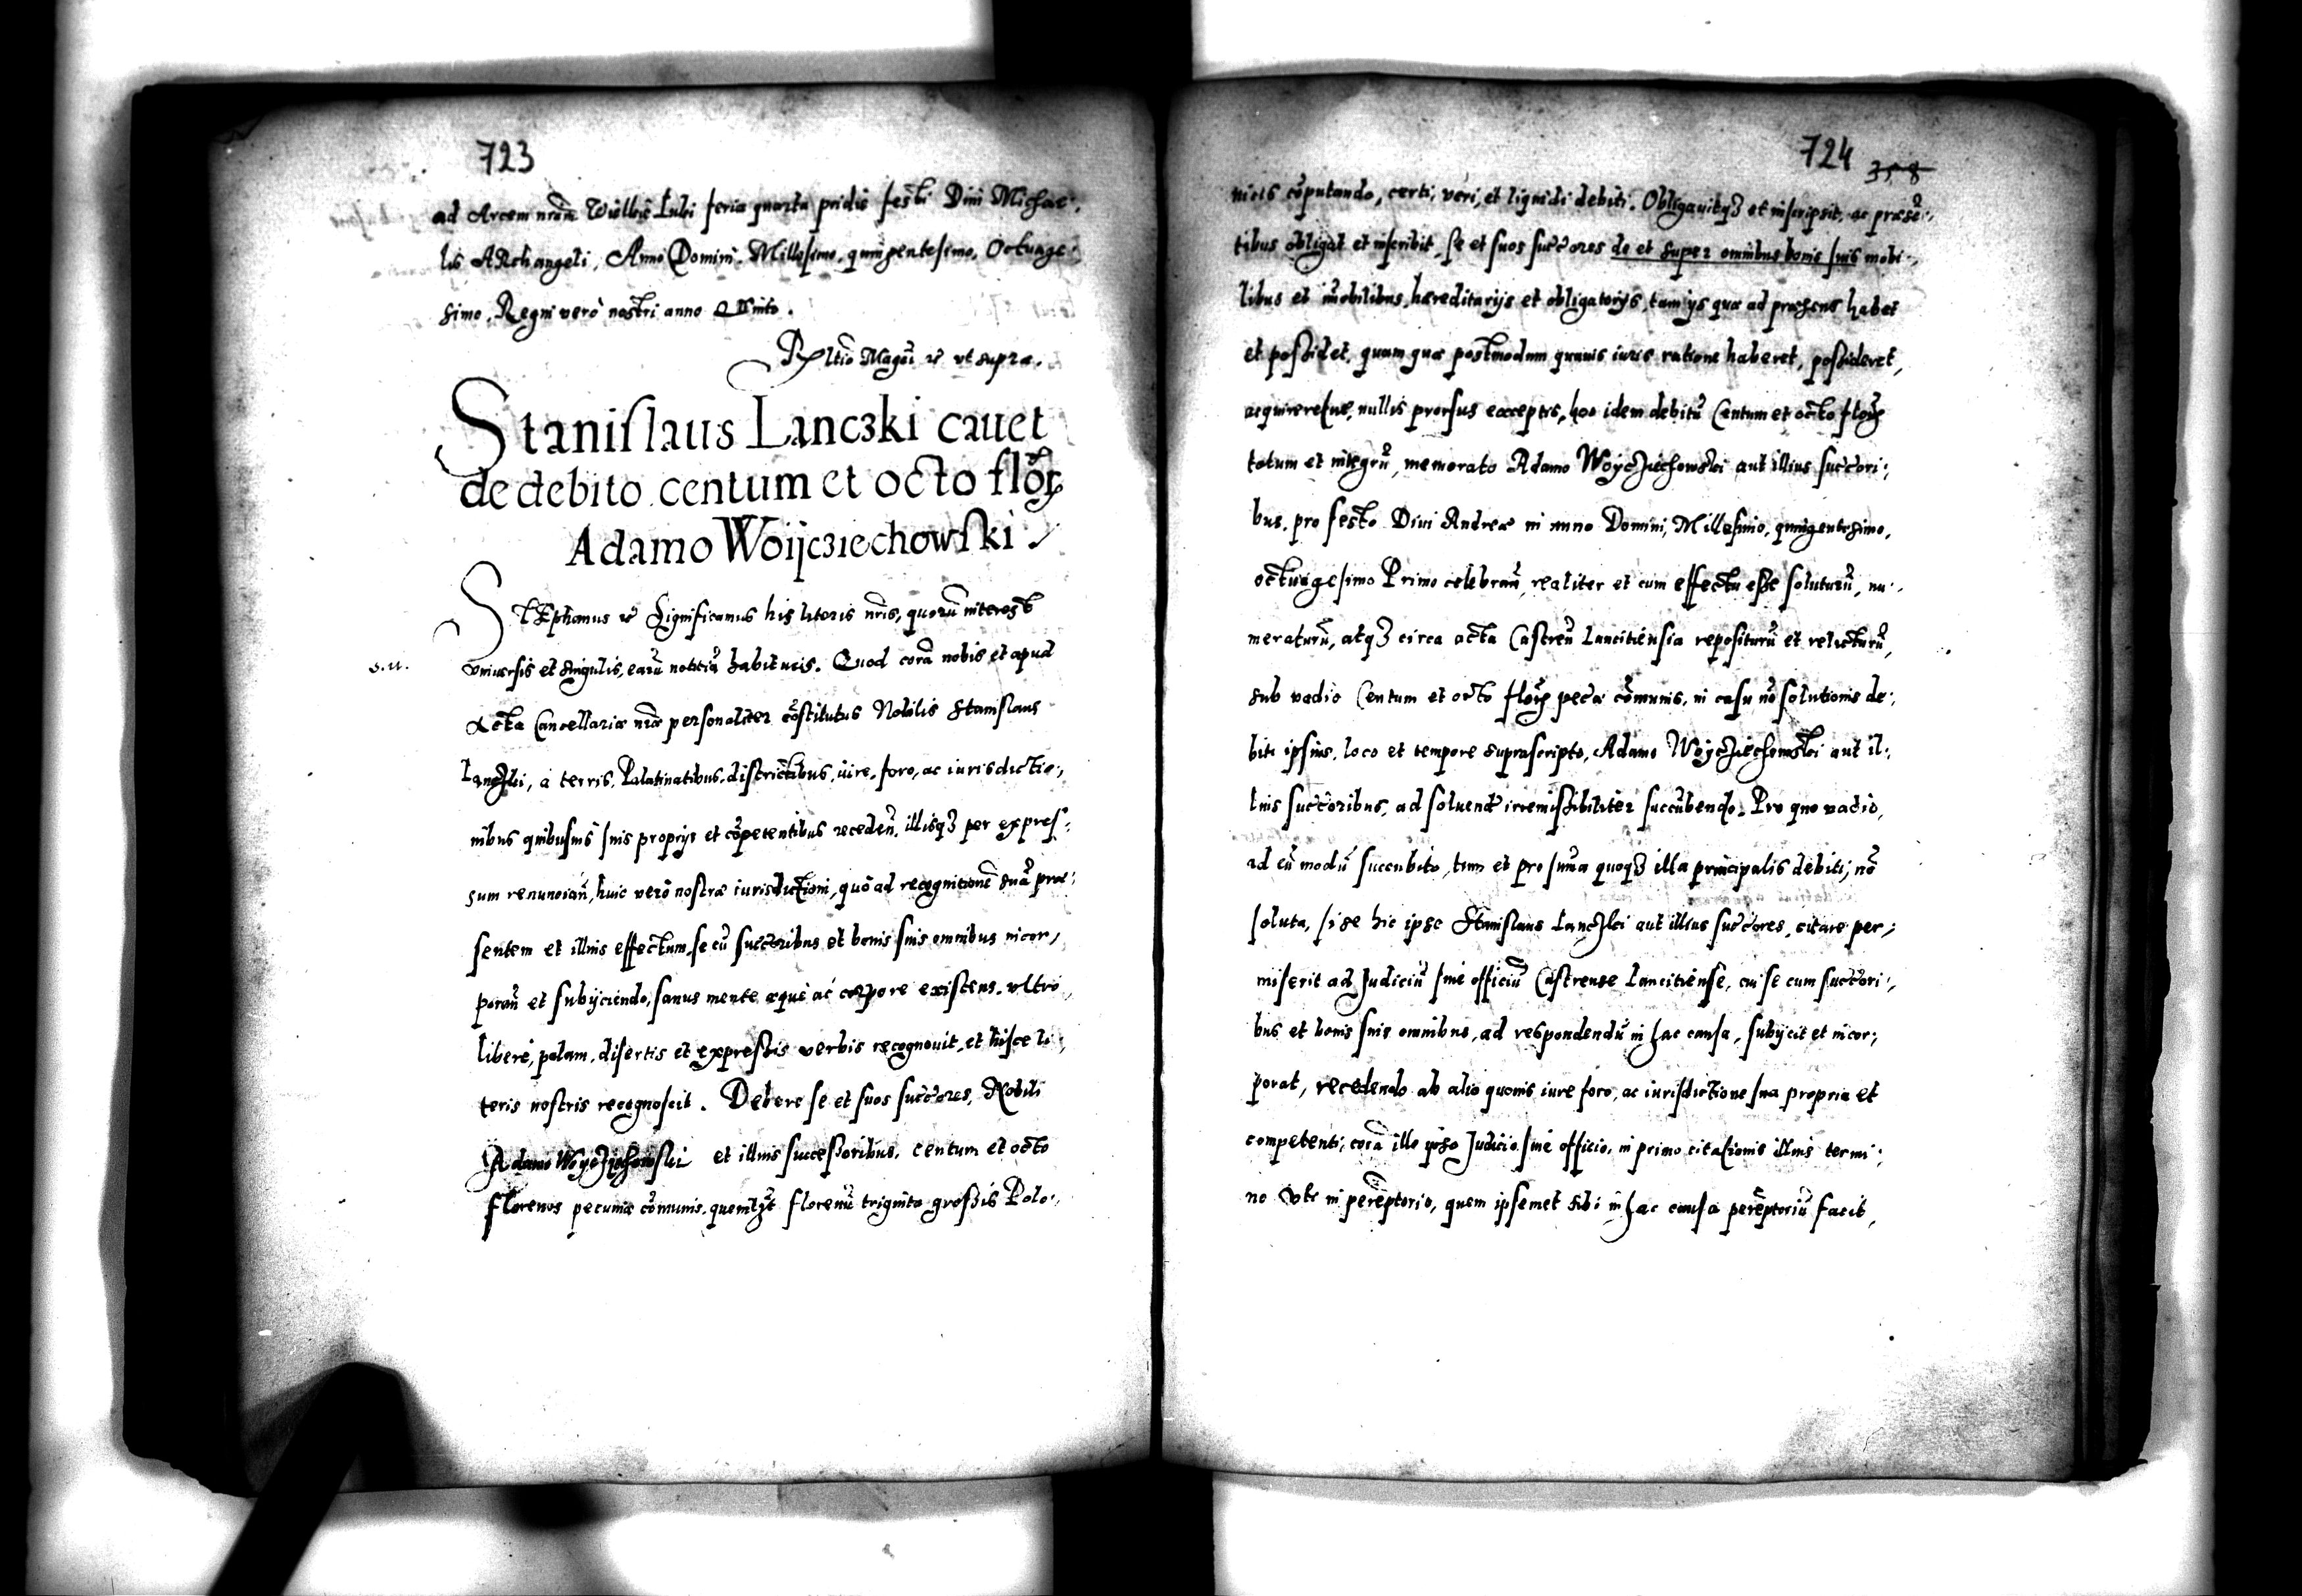 723
ad Arcem nrãm Wielkie Luki feria quarta pridie festi Diui Michae:,
lis ARchangeli, Anno Domini. Millesimo, quingentesimo, Octuage:
simo, Regni verò nostri anno QVinto.
Rltio Magci &c vt supra.
Stanislaus Lanczki cauet
de debito centum et octo flor
Adamo Woijcziechowski
STEphanus &c Significamus his literis nris, quorũ interest
s.u.
vniuersis et singulis, earũ notitiã habituris. Quod corã nobis et apud
Acta Cancellariæ nræ personaliter cõstitutus Nobilis Stanislaus
Lanczki, a terris, Palatinatibus, districtibus, iure, foro, ac iurisdictio:,
nibus quibusuis suis proprijs et cõpetentibus receden, illisq3 per expres:
sum renuncian, huic verò nostræ iurisdictioni, quo ad recognitionẽ suã præ:
sentem et illius effectum, se cũ succoribus et bonis suis omnibus incor,
poran et subijciendo, sanus mente æque ac corpore existens, vltro,
liberè, palam, disertis et expressis verbis recognouit, et hisce li:,
teris nostris recognoscit. Debere se et suos succores, Nobili
Adamo Woyczyechowski et illius successoribus, centum et octo
florenos pecuniæ cõmunis, quemlzt florenũ triginta grossis Polo:,
724 358
nicis cõputando, certi, veri, et liquidi debiti. Obligauitq3 et inscripsit, ac præsẽ:,
tibus obligat et inscribit, se et suos succores de et super omnibus bonis suis mobi:,
libus et imobilibus, hæreditarijs et obligatorijs, tam ijs quæ ad præsens habet
et possidet, quam quæ postmodum quauis iuris ratione haberet, possideret,
acquireretue, nullis prorsus exceptis, hoc idem debitũ Centum et octo flor
totum et integrũ, memorato Adamo Woyczyechowski aut illius succori:,
bus, pro festo Diui Andreæ in anno Domini, Millesimo, quingentesimo,
octuagesimo Primo celebran, realiter et cum effectu esse soluturũ, nu:,
meraturũ, atq3 circa acta Castren Lancitiensia repositurũ et relicturũ,
sub vadio Centum et octo flor pecæ cõmunis, in casu nõ solutionis de:,
biti ipsius, loco et tempore suprascripto, Adamo Woyczyechowski aut il:,
lius succoribus, ad soluend irremissibiliter succubendo. Pro quo vadio,
ad eũ modũ succubito, tum et pro suma quoq3 illa principalis debiti, nõ
soluta, si se hic ipse Stanislaus Lanczki aut illius succores, citare per,
miserit ad Judiciũ siue officiũ Castrense Lancitiense, cui se cum succori:,
bus et bonis suis omnibus, ad respondendũ in hac causa, subijcit et incor;
porat, recedendo ab alio quouis iure foro, ac iurisdictione sua propria et
competenti, corã illo ipso Judicio siue officio, in primo citationis illius termi:
no vti in perẽptorio, quem ipsemet sibi in hac causa perẽptoriũ facit,